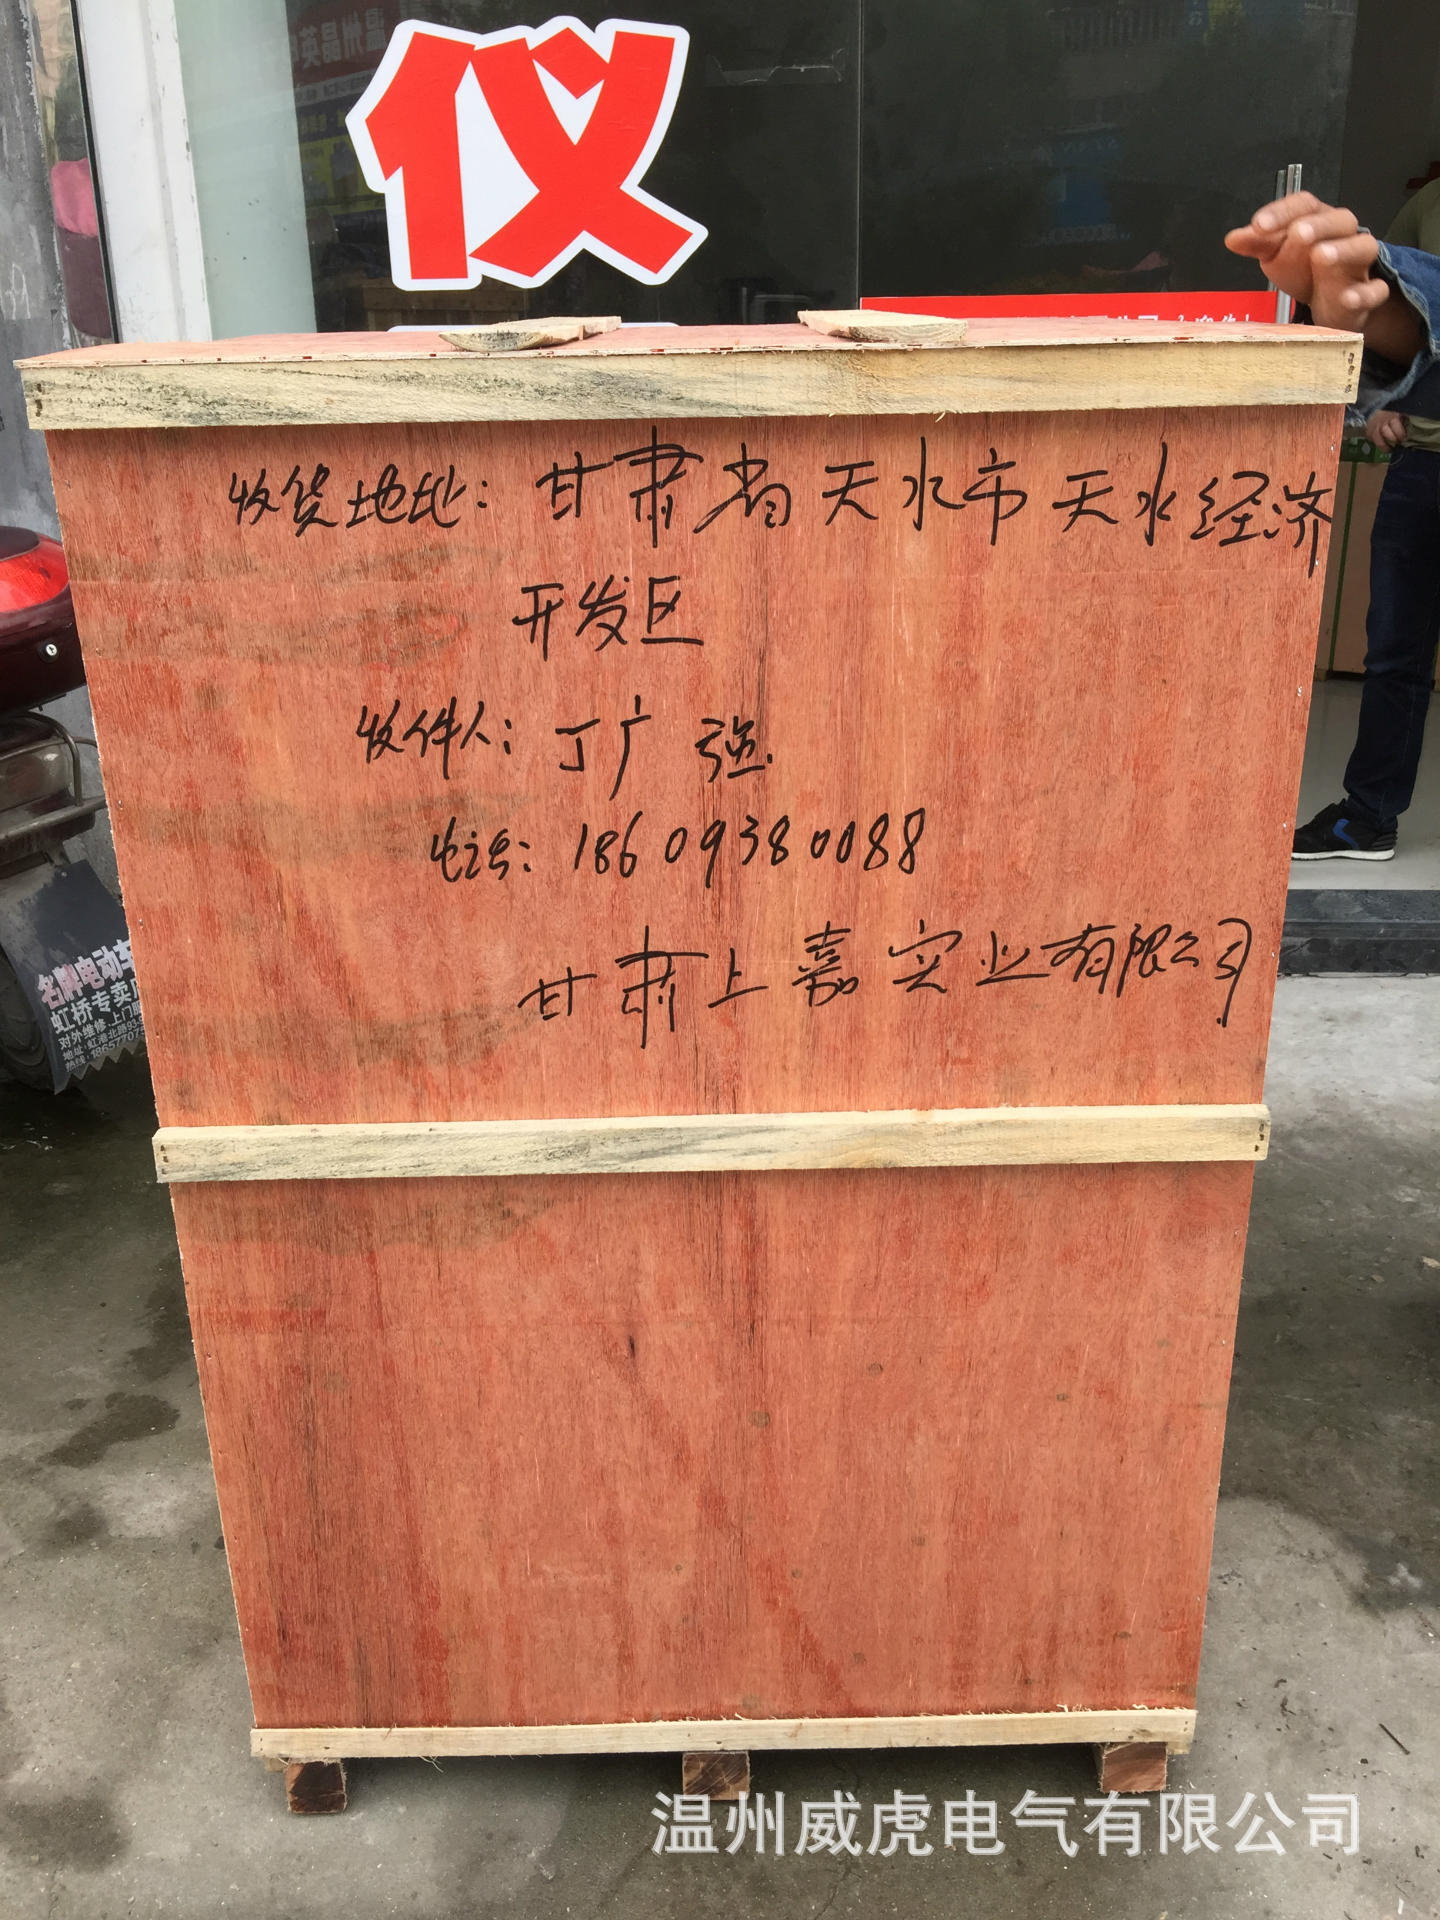 仪
收货地址：甘肃省天水市天水经济
开发区
收件人：丁广强
电话：18609380088
甘肃上嘉实业有限公司
名牌电动车
虹桥专卖店
对外维修·上门服
地址：虹港北路93-9
热线：186577075
温州威虎电气有限公司